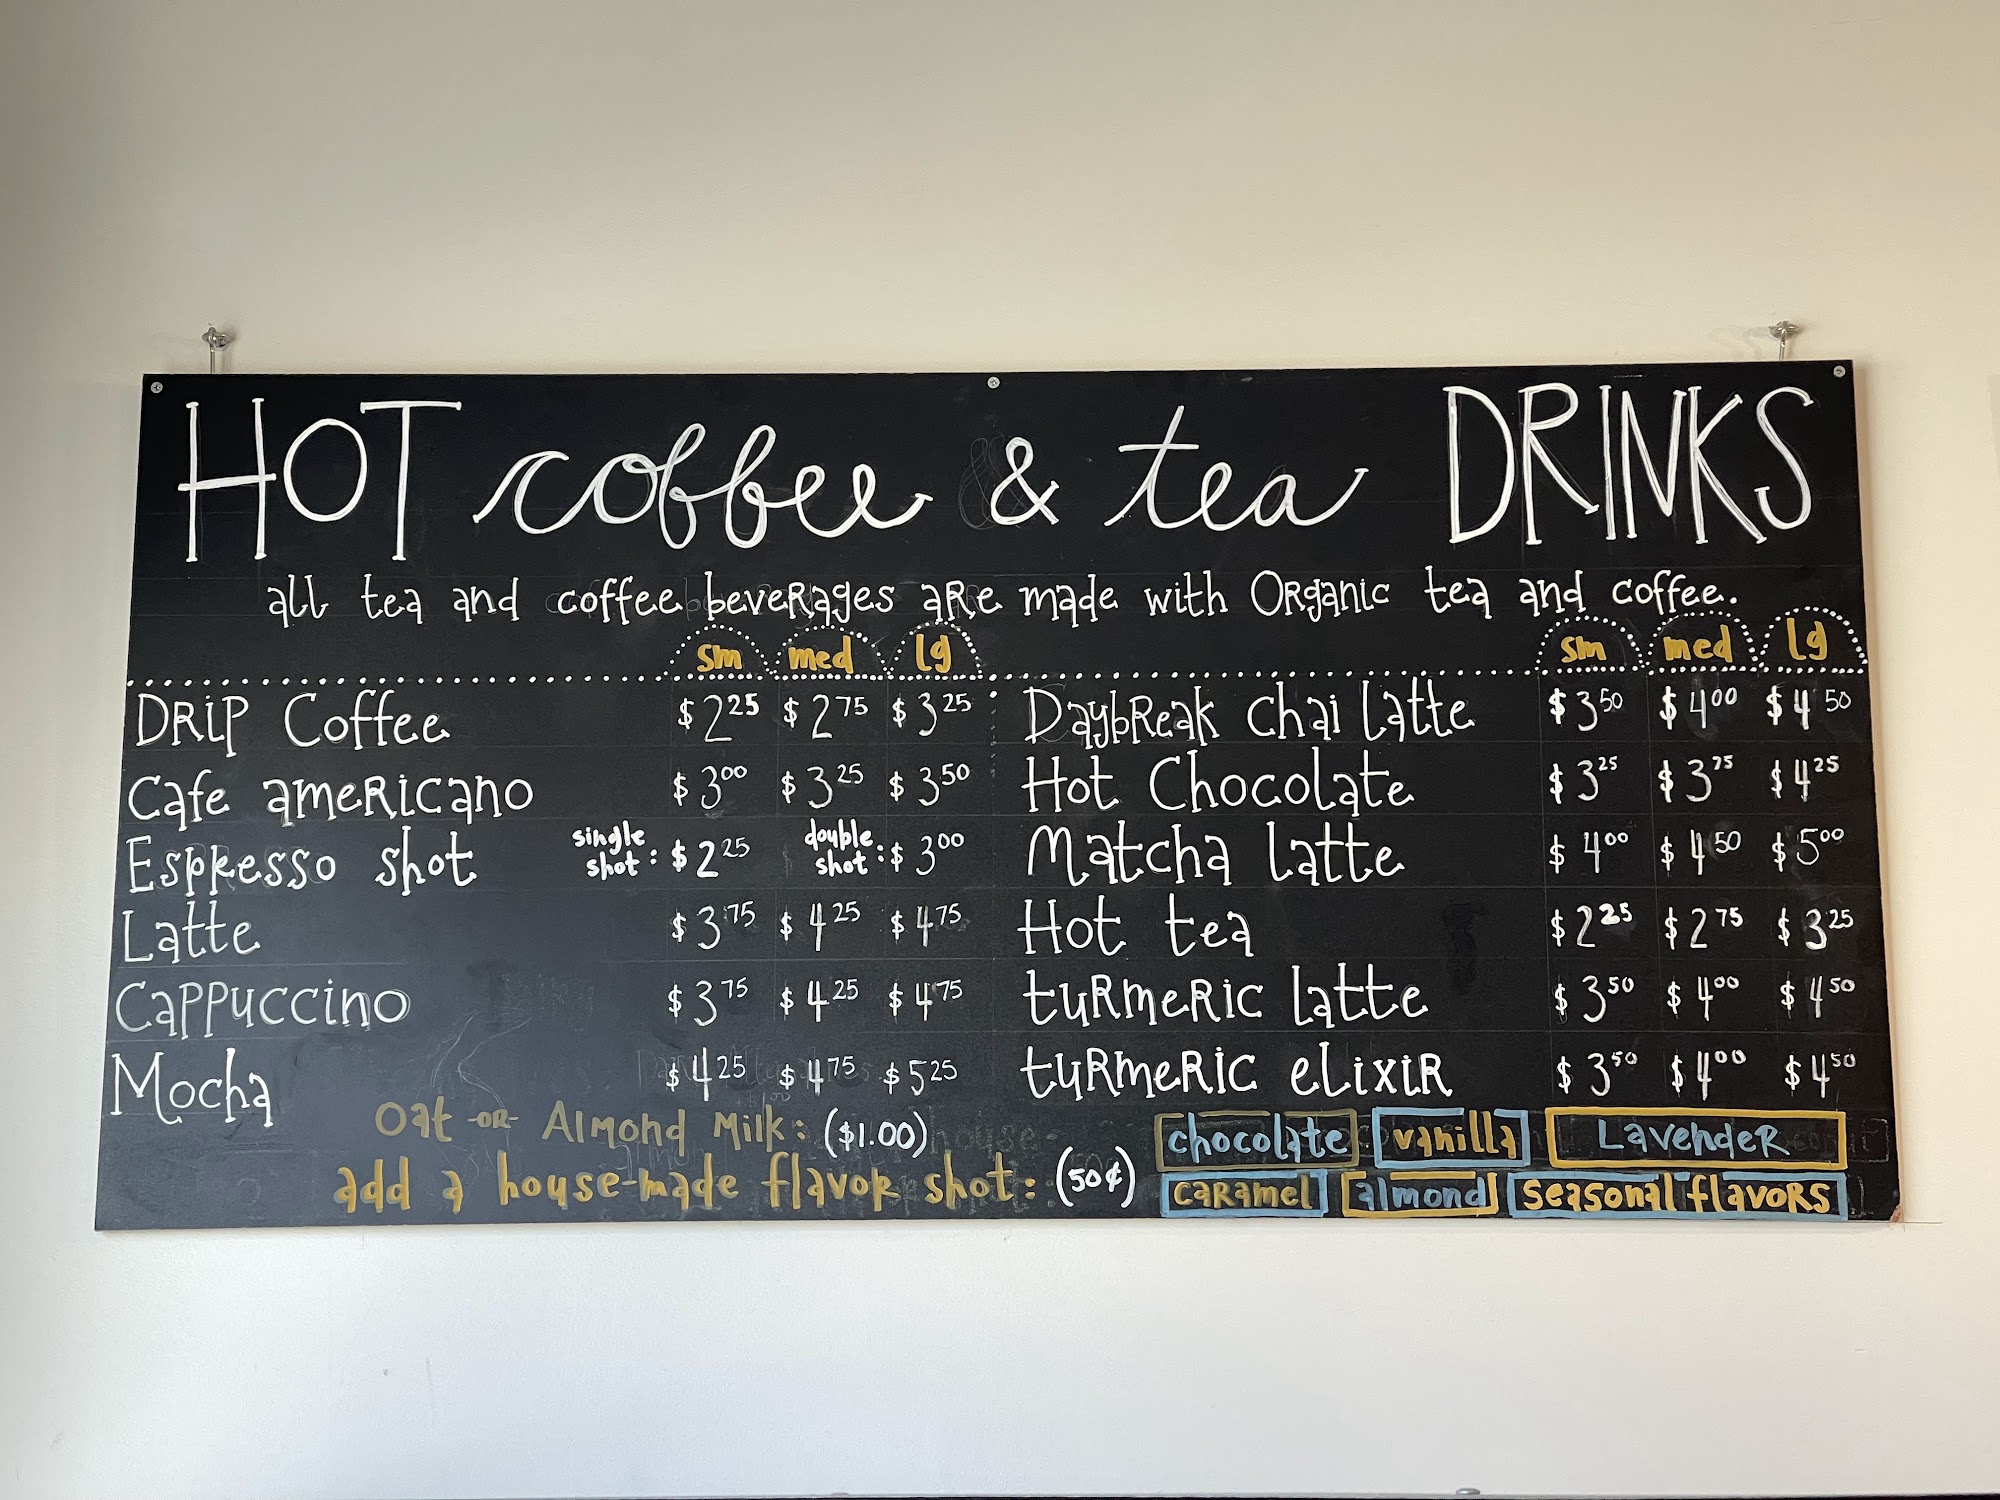 HOT coffee & tea DRINKS
all tea and coffee beverages are made with Organic tea and coffee.
sm med lg
Drip Coffee $2.25 $2.75 $3.25
Cafe americano $3.00 $3.25 $3.50
Espresso shot single shot: $2.25 double shot: $3.00
Latte $3.75 $4.25 $4.75
Cappuccino $3.75 $4.25 $4.75
Mocha $4.25 $4.75 $5.25
sm med lg
Daybreak Chai latte $3.50 $4.00 $4.50
Hot Chocolate $3.25 $3.75 $4.25
Matcha latte $4.00 $4.50 $5.00
Hot tea $2.25 $2.75 $3.25
turmeric latte $3.50 $4.00 $4.50
turmeric elixir $3.50 $4.00 $4.50
Oat -OR- Almond Milk: ($1.00)
add a house-made flavor shot: (50¢)
chocolate vanilla Lavender
caramel almond seasonal flavors